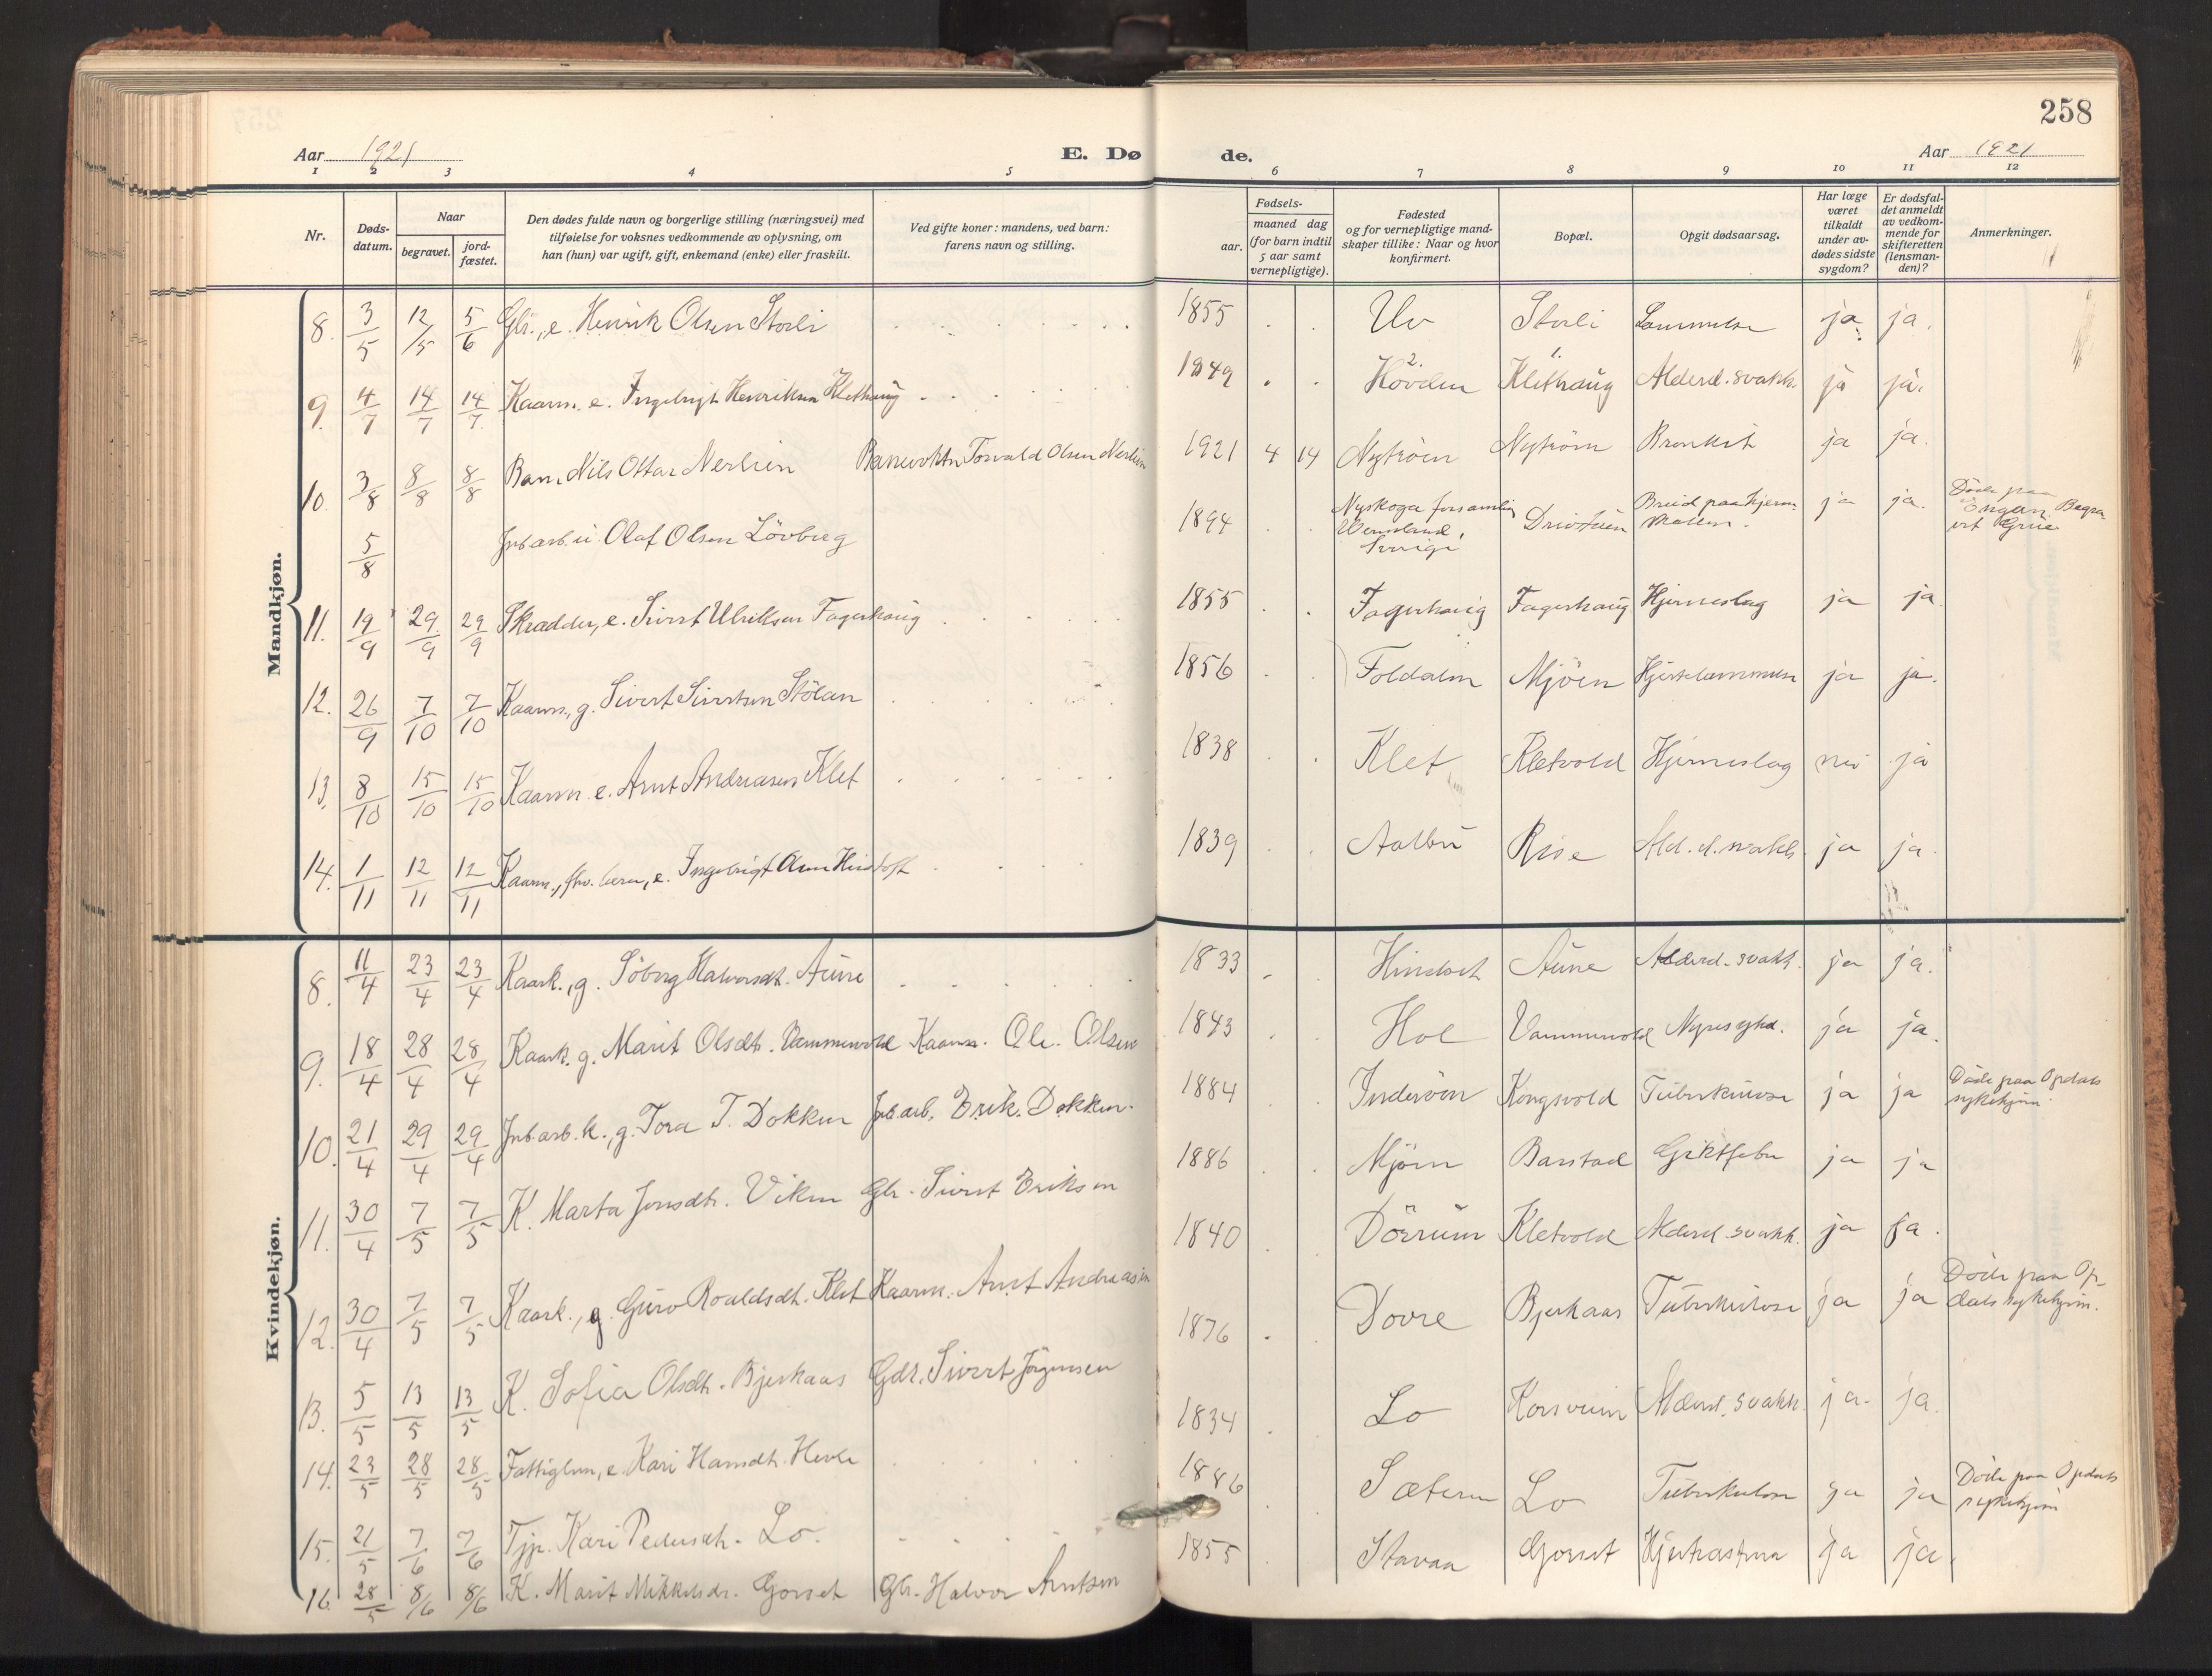 258
Aar 1921 E. Dø de. Aar 1921
1 2 3 4 5 6 7 8 9 10 11 12
Nr.
Døds-
datum.
Naar
begravet.
jord-
fæstet.
Den dødes fulde navn og borgerlige stilling (næringsvei) med
tilføielse for voksnes vedkommende av oplysning, om
han (hun) var ugift, gift, enkemand (enke) eller fraskilt.
Ved gifte koner: mandens, ved barn:
farens navn og stilling.
Fødsels-
aar.
maaned dag
(for barn indtil
5 aar samt
vernepligtige).
Fødested
og for vernepligtige mand-
skaper tillike: Naar og hvor
konfirmert.
Bopæl.
Opgit dødsaarsag.
Har læge
været
tilkaldt
under av-
dødes sidste
sygdom?
Er dødsfal-
det anmeldt
av vedkom-
mende for
skifteretten
(lensman-
den)?
Anmerkninger.
Mandkjøn.
8. 3/5 12/5 5/6 Gbr., e. Henrik Olsen Storli 1855 Uv Storli Lammelse ja ja.
9. 4/7 14/7 14/7 Kaarm. e. Ingebrigt Henriksen Klethaug 1849 2. Hovden 1. Klethaug Alderd. svakh. ja ja.
10. 3/8 8/8 8/8 Barn, Nils Ottar Nerlien Banevokter Torvald Olsen Nerlien 1921 4 14 Nyströen Nyströen Bronkit ja ja.
5/8 Jnb.arb. u. Olaf Olsen Lövberg 1894 Nyskoga forsamling Wermland, Sverige Drivstuen Brud paa hjerne- ja ja. Döde paa Begra- vet Grue
11. 19/9 29/9 29/9 Skrædder, e. Sivert Ulriksen Fagerhaug 1855 Fagerhaug Fagerhaug Hjerneslag ja ja.
12. 26/9 7/10 7/10 Kaarm., g. Sivert Sivertsen Stölan 1856 Foldalen Mjöen Hjertelammelse ja ja.
13. 8/10 15/10 15/10 Kaarm. e. Arnt Andreasen Klet 1838 Klet Kletvold Hjerneslag nei ja
14. 1/11 12/11 12/11 Kaarm., fhv. lærer, e. Ingebrigt Olsen 1839 Aalbu Rise Ald. d. svakh. ja ja.
Kvindekjøn.
8. 11/4 23/4 23/4 Kaark., g. Söborg Halvorsdt. Aune 1833 Hindset Aune Alderd. svakh. ja ja.
9. 18/4 28/4 28/4 Kaark. g. Marit Olsdt. Vammervold Kaarm. Ole Olsen 1843 Hol Vammervold Nyresykd. ja ja.
10. 21/4 29/4 29/4 Jnb.arb. k., g. Tora T. Dokken Jnb.arb. Erik Dokken. 1884 Inderöen Kongsvold Tuberkulose ja ja Döde paa Opdals sykehjem.
11. 30/4 7/5 7/5 K. Marta Jonsdt. Viken Gbr. Sivert Eriksen 1886 Mjöen Barstad Giktfeber ja ja
12. 30/4 7/5 7/5 Kaark., g. Guro Roaldsdt. Klet Kaarm. Arnt Andreasen 1840 Dörrum Kletvold Alderd. svakh. ja ja.
13. 5/5 13/5 13/5 K. Sofia Olsdt. Bjerkaas Gdr. Sivert Jörgensen 1876 Dovre Bjerkaas Tuberkulose ja ja Döde paa Op- dals sykehjem.
14. 23/5 28/5 28/5 Fattiglem, e. Kari Hansdt. Hevle 1834 Lo Alderd. svakh. ja. ja.
15. 21/5 7/6 7/6 Tjp. Kari Pedersdt. Lo. 1886 Sæteren Lo Tuberkulose ja ja Döde paa Opdals sykehjem
16. 28/5 8/6 8/6 K. Marit Mikkelsdr. Gorset Gbr. Halvor Arntsen 1855 Stavaa Gorset ja ja.